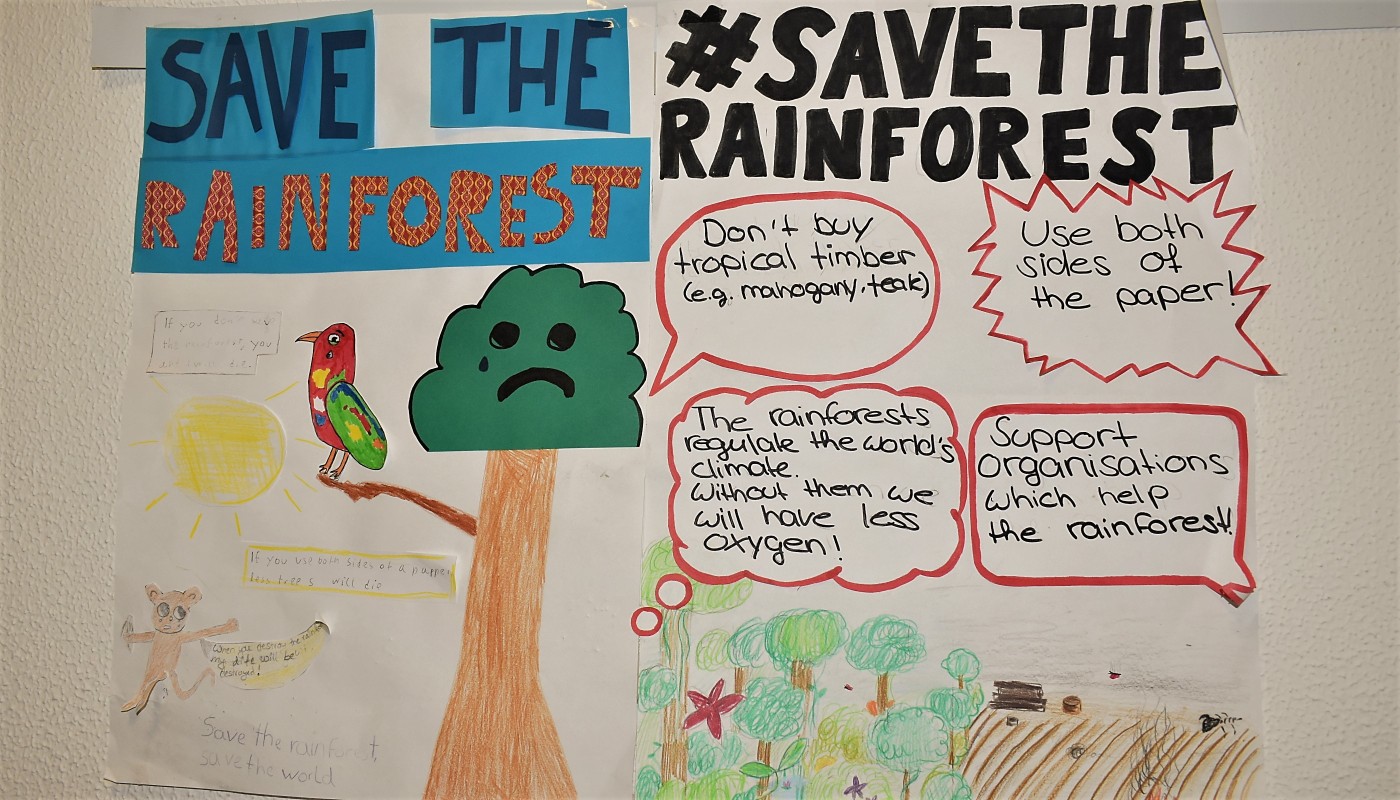 SAVE THE
RAINFOREST
If you don't
you
die.
If you use both sides of a papper
less trees will die
When you destroy the
my life will be
destroyed!
Save the rainforest,
save the world
#SAVETHE
RAINFOREST
Don't buy
tropical timber
(e.g. mahogany, teak)
Use both
sides of
the paper!
The rainforests
regulate the world's
climate.
Without them we
will have less
oxygen!
Support
organisations
which help
the rainforest!